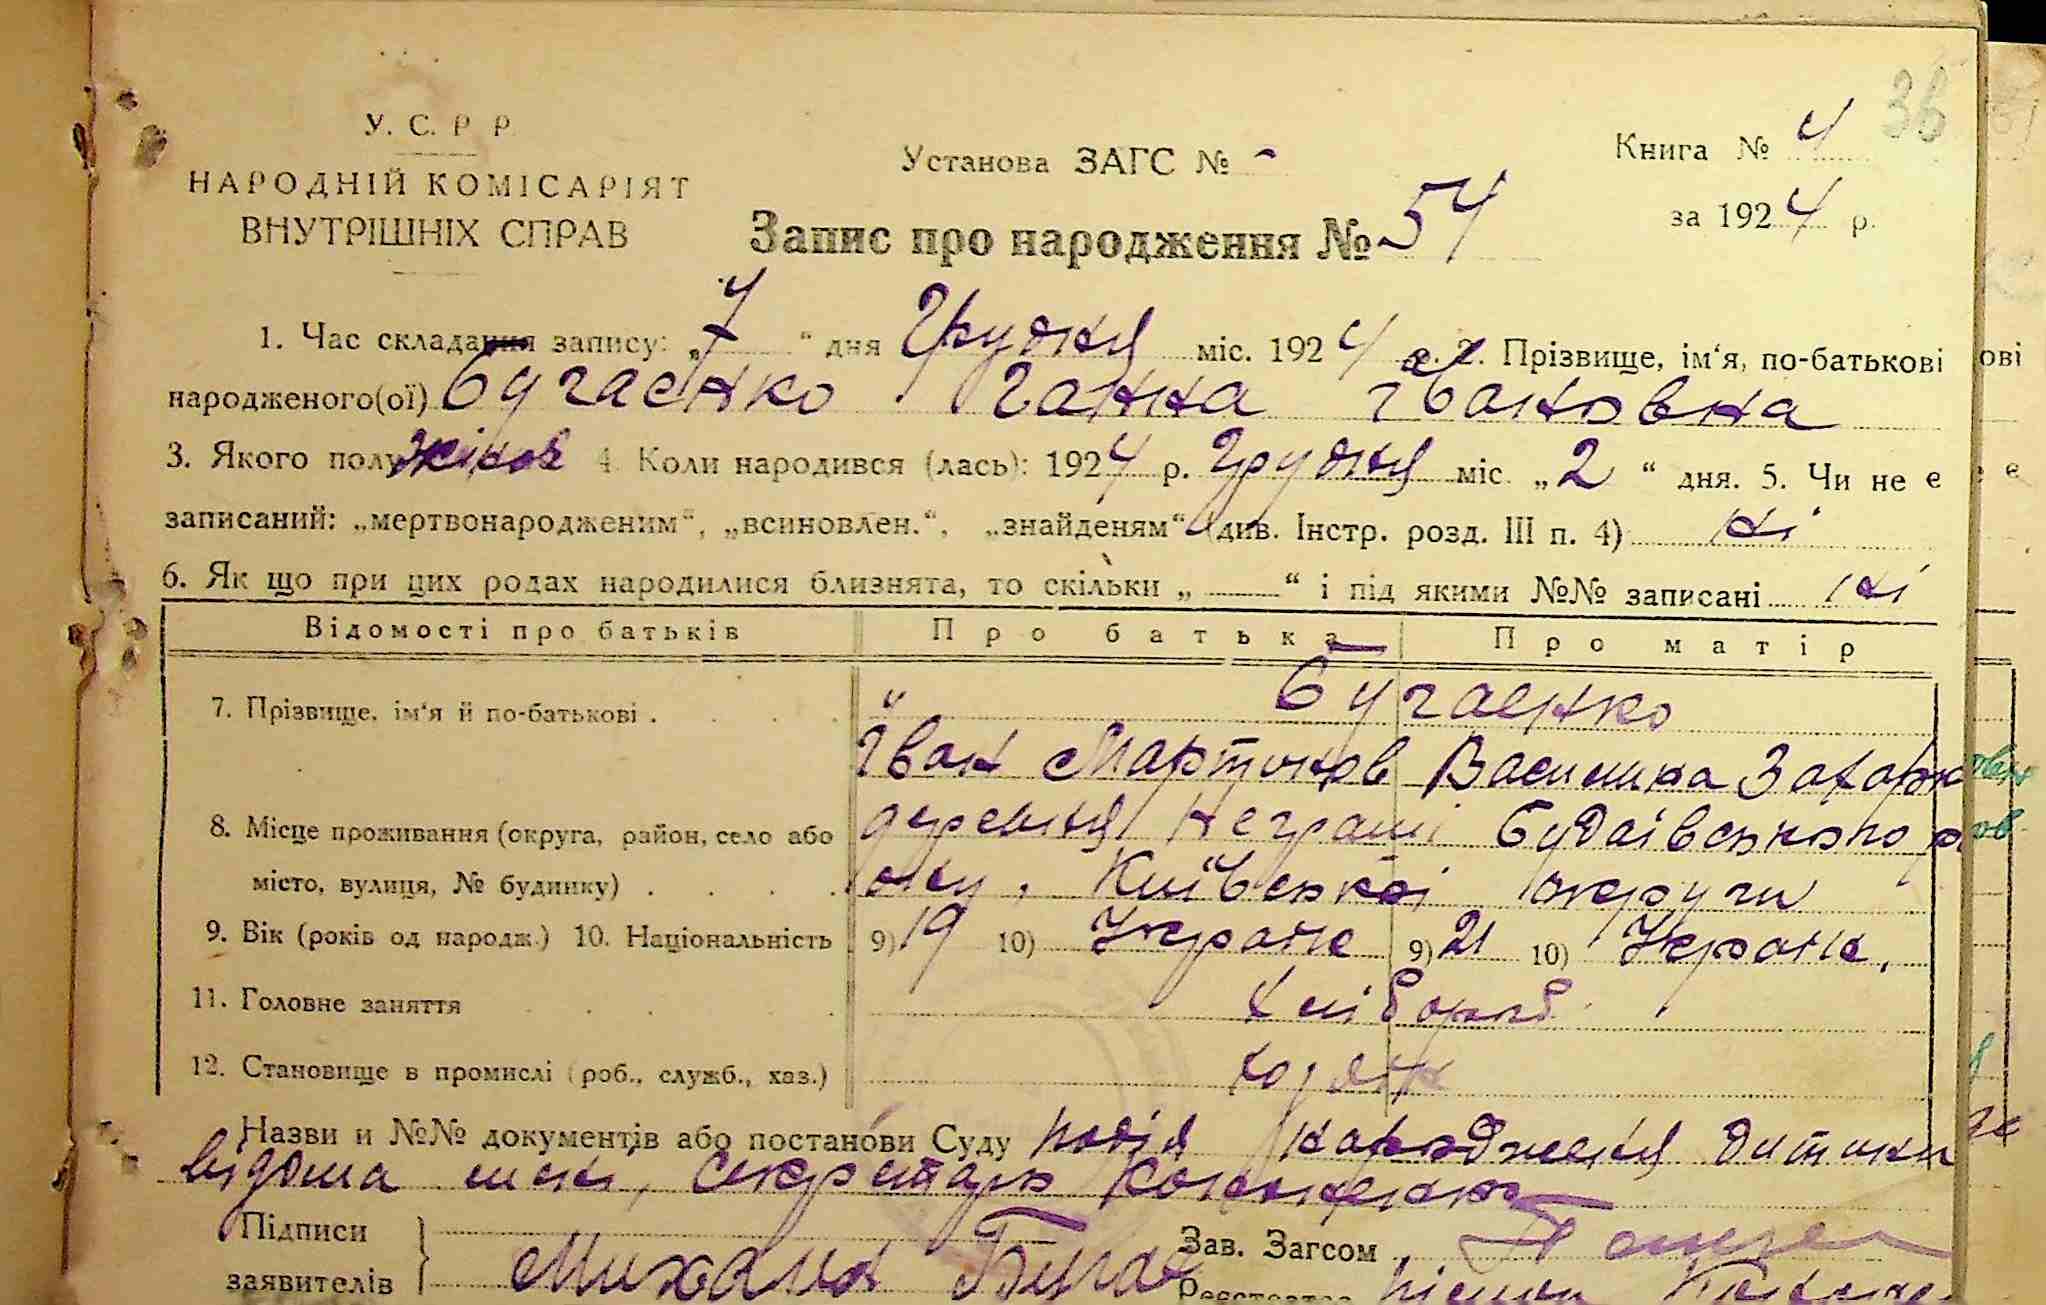 36
У. С. Р Р.
НАРОДНІЙ КОМІСАРІЯТ
ВНУТРІШНІХ СПРАВ
Установа ЗАГС № -
Книга № 4
за 1924 р.
Запис про народження № 54
1. Час складання запису: „7“ дня Грудня міс. 1924 р. 2. Прізвище, ім‘я, по-батькові
народженого(ої) Бугаєнко Ганна Івановна
3. Якого полу жіноч 4. Коли народився (лась): 1924 р. Грудня міс. „2“ дня. 5. Чи не є
записаний: „мертвонародженим“, „всиновлен.“, „знайденям“ (див. Інстр. розд. III п. 4) ні
6. Як що при цих родах народилися близнята, то скільки „ “ і під якими №№ записані ні
Відомості про батьків Про батька Про матір
7. Прізвище, ім‘я й по-батькові . Бугаенко
Іван Мартинов Василина Захаров
8. Місце проживання (округа, район, село або деревня Неграші Будаівського р
місто, вулиця, № будинку) . ону, Київської округи
9. Вік (років од народж.) 10. Національність 9) 19 10) Украіне 9) 21 10) Украіне.
11. Головне заняття хлібороб
12. Становище в промислі (роб., служб., хаз.) хозяїн
Назви и №№ документів або постанови Суду подія народження дитини
відома мені, секретарь
Підписи
заявителів Михайло Бугає
Зав. Загсом